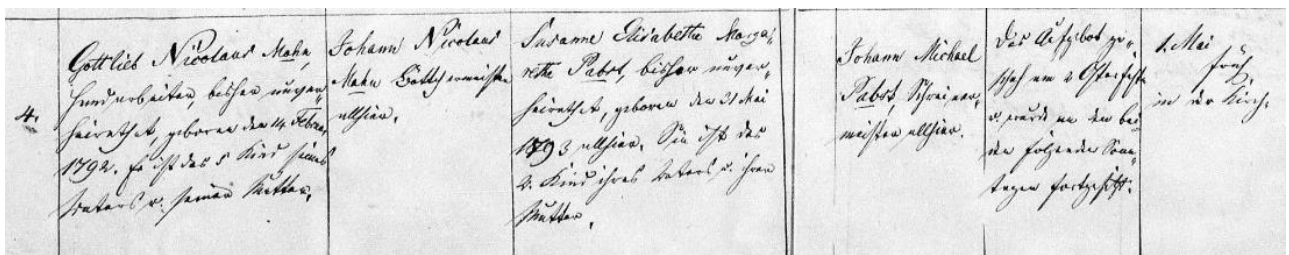 4.
Gottlieb Nicolaus Mahn,
Handarbeiter, bisher unver-
heirathet, geboren den 14. Februar
1792. Er ist das 5 Kind seines
Vaters u. seiner Mutter.
Johann Nicolaus
Mahn Böttchermeister
allhier.
Susanne Elisabetha Marga-
retha Pabst, bisher unver-
heirathet, geboren den 21 Mai
1793 allhier. Sie ist das
2. Kind ihres Vaters u. ihrer
Mutter.
Johann Michael
Pabst, Schreiner-
meister allhier.
Das Aufgebot ge-
schah am 2 Osterfeste
u. wurde an den bei-
den folgenden Sonn-
tagen fortgesetzt.
1. Mai
früh
in der Kirch.